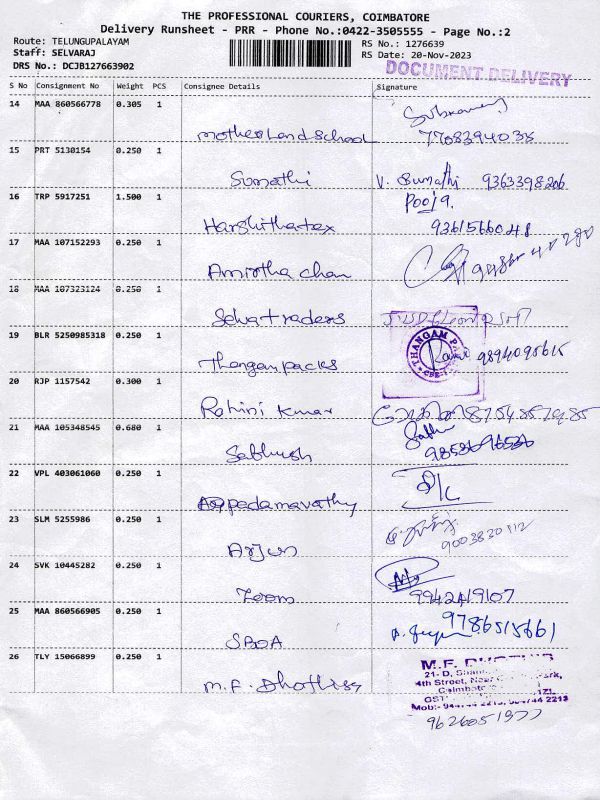 THE PROFESSIONAL COURIERS, COIMBATORE
Delivery Runsheet - PRR - Phone No.:0422-3505555 - Page No.:2
Route: TELUNGUPALAYAM
Staff: SELVARAJ
DRS No.: DCJB127663902
RS No.: 1276639
RS Date: 20-Nov-2023
DOCUMENT DELIVERY
S No Consignment No Weight PCS Consignee Details Signature
14 MAA 860566778 0.305 1
Motherland School 7708394038
15 PRT 5130154 0.250 1
Sumathi V. Sumathi 9363398206
16 TRP 5917251 1.500 1
Pooja.
Harshitha tex 9361566048
17 MAA 107152293 0.250 1
Amirtha chan
18 MAA 107323124 0.250 1
Selva traders
19 BLR 5250985318 0.250 1
THANGAM PA
CBE-1
Thangam packs 9894095615
20 RJP 1157542 0.300 1
Rohini Kumar 8754857985
21 MAA 105348545 0.680 1
Sabhush
22 VPL 403061060 0.250 1
padamavathy
23 SLM 5255986 0.250 1
Arjun 9003820112
24 SVK 10445282 0.250 1
Zoom 9942419107
25 MAA 860566905 0.250 1
SBOA 9786515661
26 TLY 15066899 0.250 1
M.F. Dhothiss
M.F.
21- D,
4th Street,
Coimbato
GST
Mob:-
9626051977